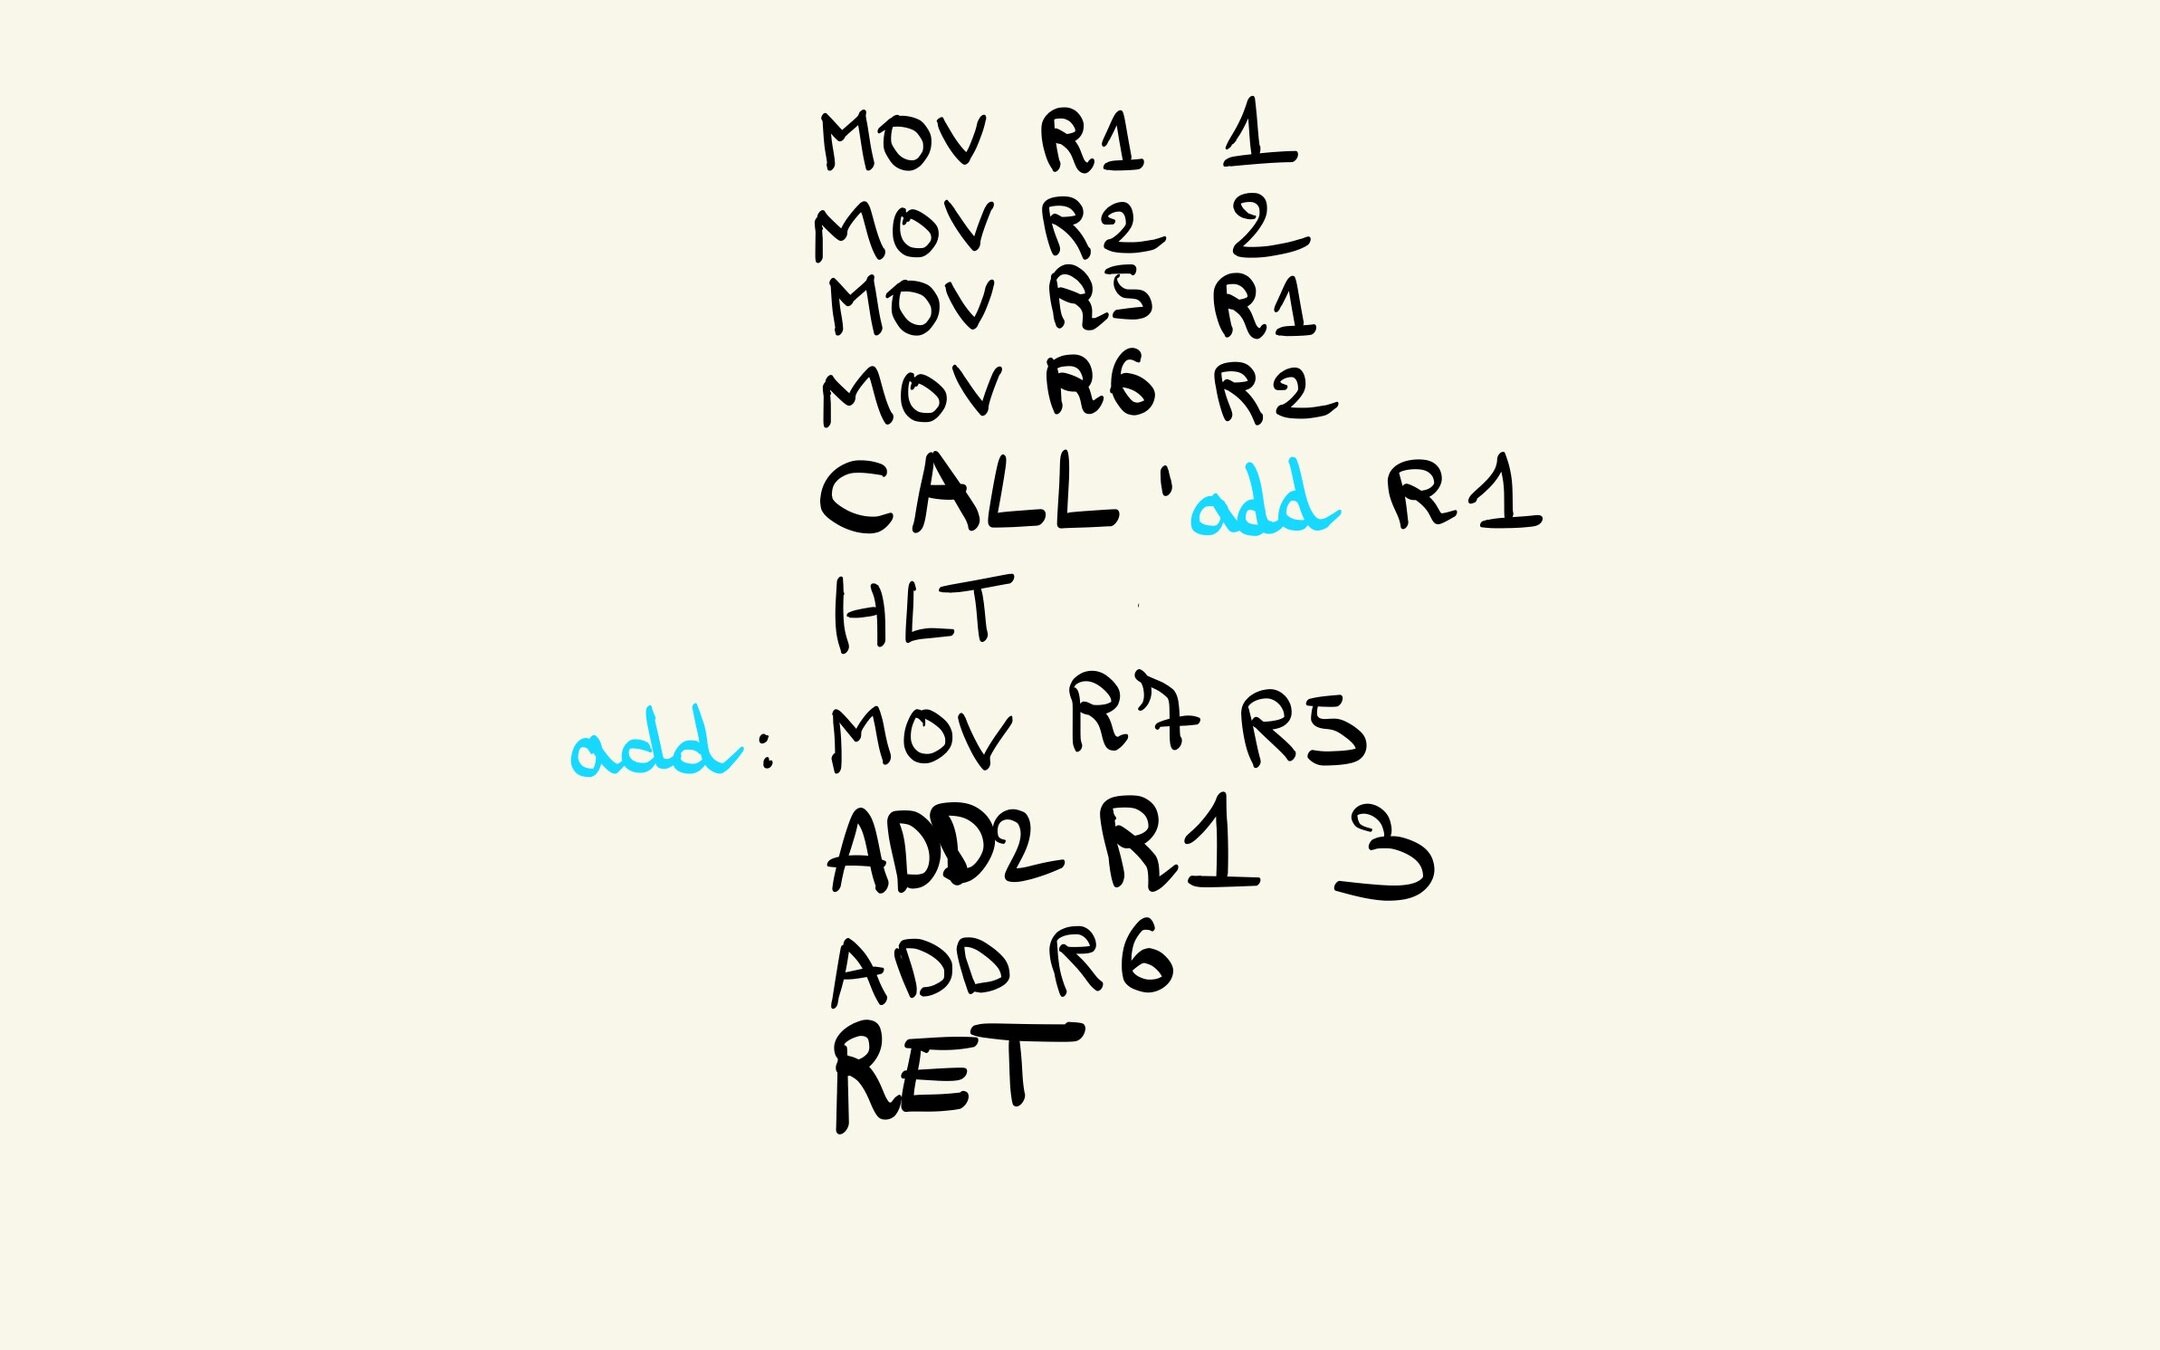 MOV R1 1
MOV R2 2
MOV R5 R1
MOV R6 R2
CALL 'add R1
HLT
add: MOV R7 R5
ADD2 R1 3
ADD R6
RET